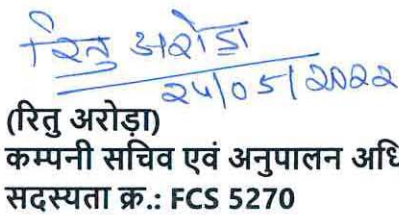 रितु अरोड़ा
24/05/2022
(रितु अरोड़ा)
कम्पनी सचिव एवं अनुपालन अधि
सदस्यता क्र.: FCS 5270